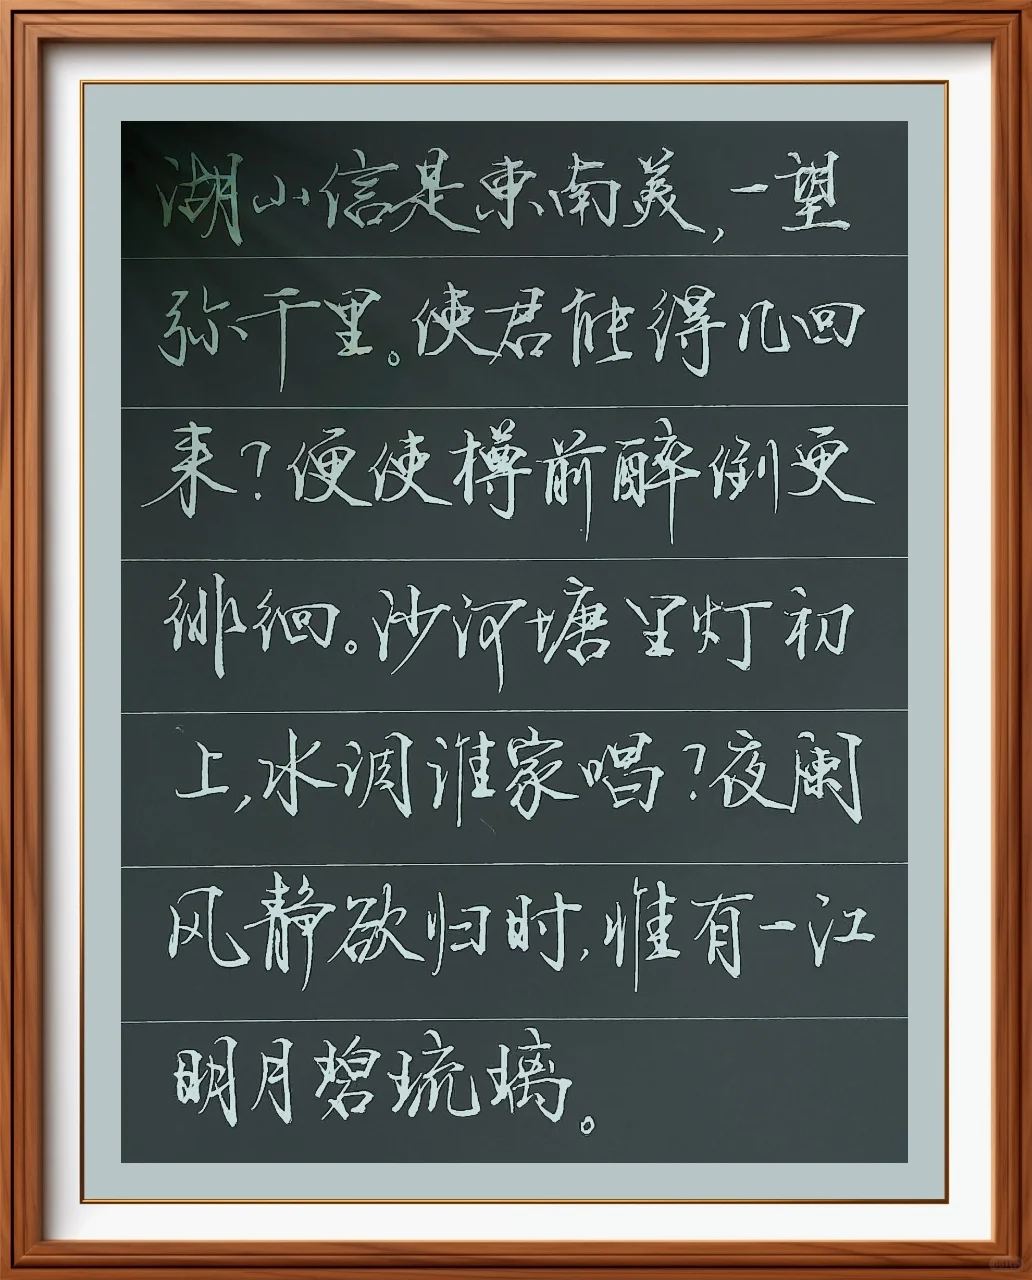 湖山信是東南美,一望
弥千里。使君能得几回
来?便使樽前醉倒更
徘徊。沙河塘里灯初
上,水调谁家唱?夜阑
风静欲归时,惟有一江
明月碧琉璃。